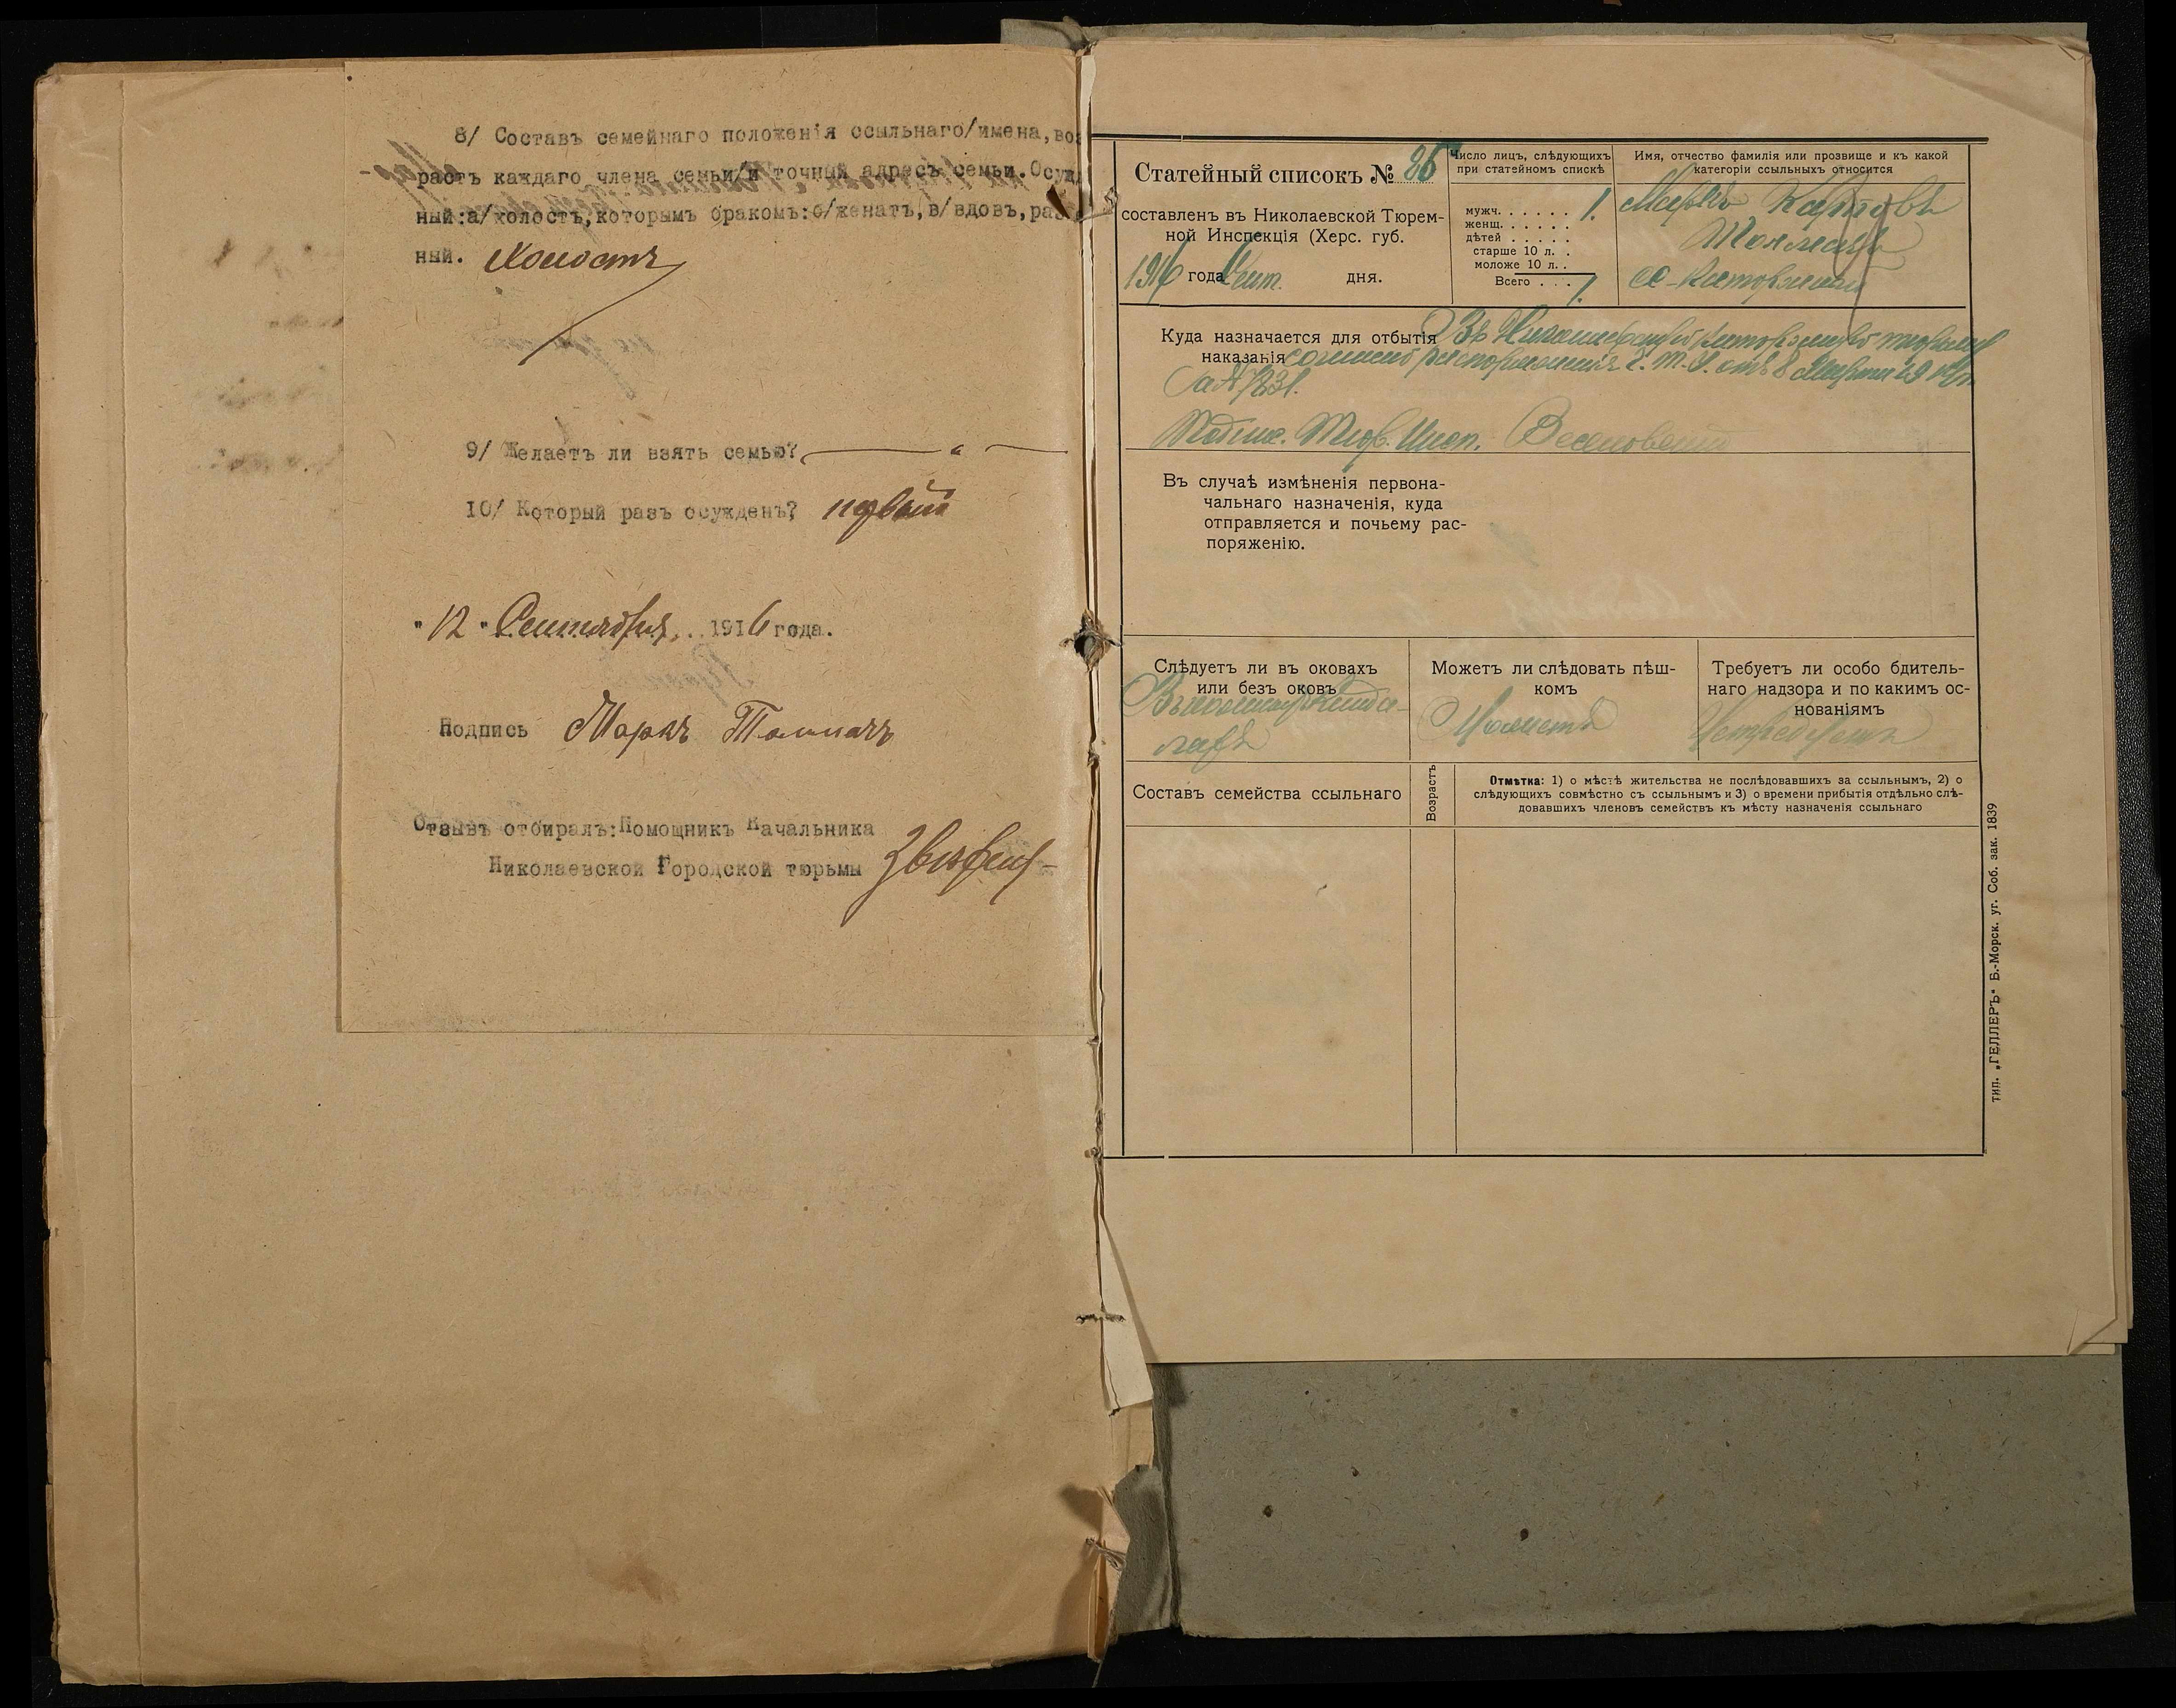 8/ Составъ семейнаго положенія ссыльнаго/имена,воз
растъ каждаго члена семьи/и точный адресъ семьи.Осуж
ный:а/холостъ,которымъ бракомъ:б/женатъ,в/вдовъ,раз
ный. Холостъ
9/ Желаетъ ли взять семью? — " —
10/ Который разъ осужденъ? первый
"12" Сентября 1916 года.
Подпись Маркъ Толмачъ
Отзывъ отбиралъ:Помощникъ Начальника
Николаевской Городской тюрьмы
Статейный списокъ № 26
составленъ въ Николаевской Тюрем-
ной Инспекція (Херс. губ.
1916 года Сент. дня.
Число лицъ, слѣдующихъ
при статейномъ спискѣ
мужч. . . . . . 1.
женщ. . . . . .
дѣтей . . . . .
старше 10 л. .
моложе 10 л. .
Всего . . . 1.
Имя, отчество фамилія или прозвище и къ какой
категоріи ссыльныхъ относится
Маркъ Карповъ
Толмачъ
С-Каторжный
Куда назначается для отбытія Въ Николаевскую каторжную тюрьму
наказанія согласно распоряженія Г. Т. У. отъ 8 Марта
за №
Тюр. Инсп. Веселовскій
Въ случаѣ измѣненія первона-
чальнаго назначенія, куда
отправляется и почьему рас-
поряженію.
Слѣдуетъ ли въ оковахъ
или безъ оковъ
Въ канда-
лахъ
Можетъ ли слѣдовать пѣш-
комъ
Можетъ
Требуетъ ли особо бдитель-
наго надзора и по какимъ ос-
нованіямъ
Нетребуетъ
Составъ семейства ссыльнаго
Возрастъ
Отмѣтка: 1) о мѣстѣ жительства не послѣдовавшихъ за ссыльнымъ, 2) о
слѣдующихъ совмѣстно съ ссыльнымъ и 3) о времени прибытія отдѣльно слѣ-
довавшихъ членовъ семействъ къ мѣсту назначенія ссыльнаго
тип. „ГЕЛЛЕРЪ" Б.-Морск. уг. Соб. зак. 1839